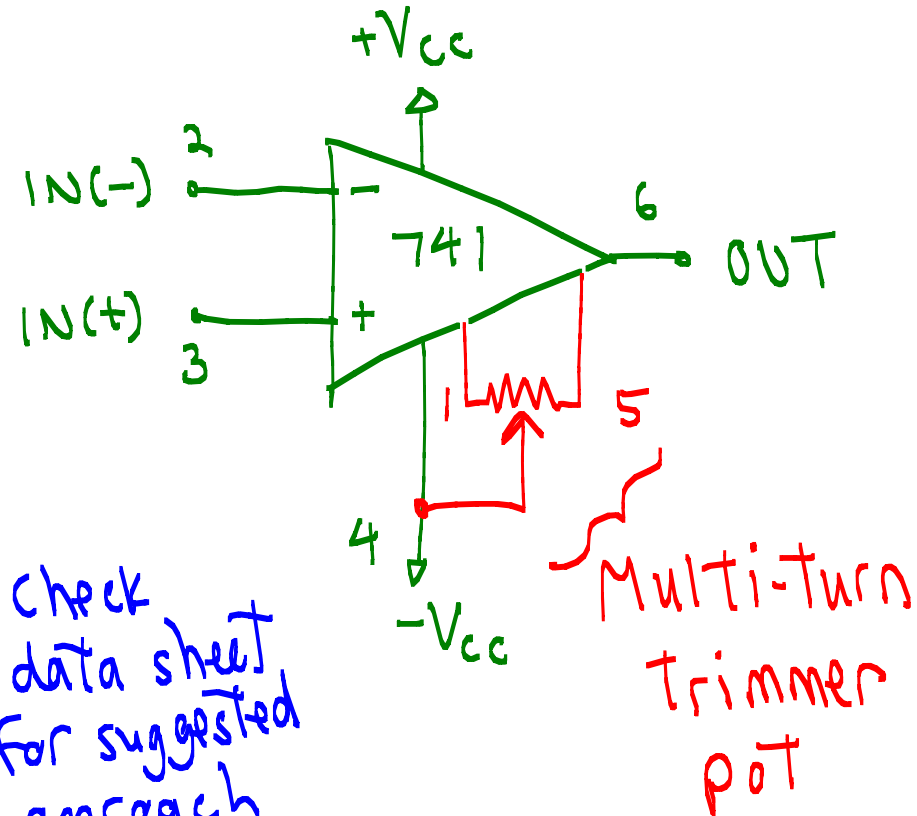 +Vcc
2
IN(-)
-
6
741
OUT
IN(+)
+
3
1
5
4
-Vcc
Multi-turn
trimmer
pot
check
data sheet
for suggested
approach